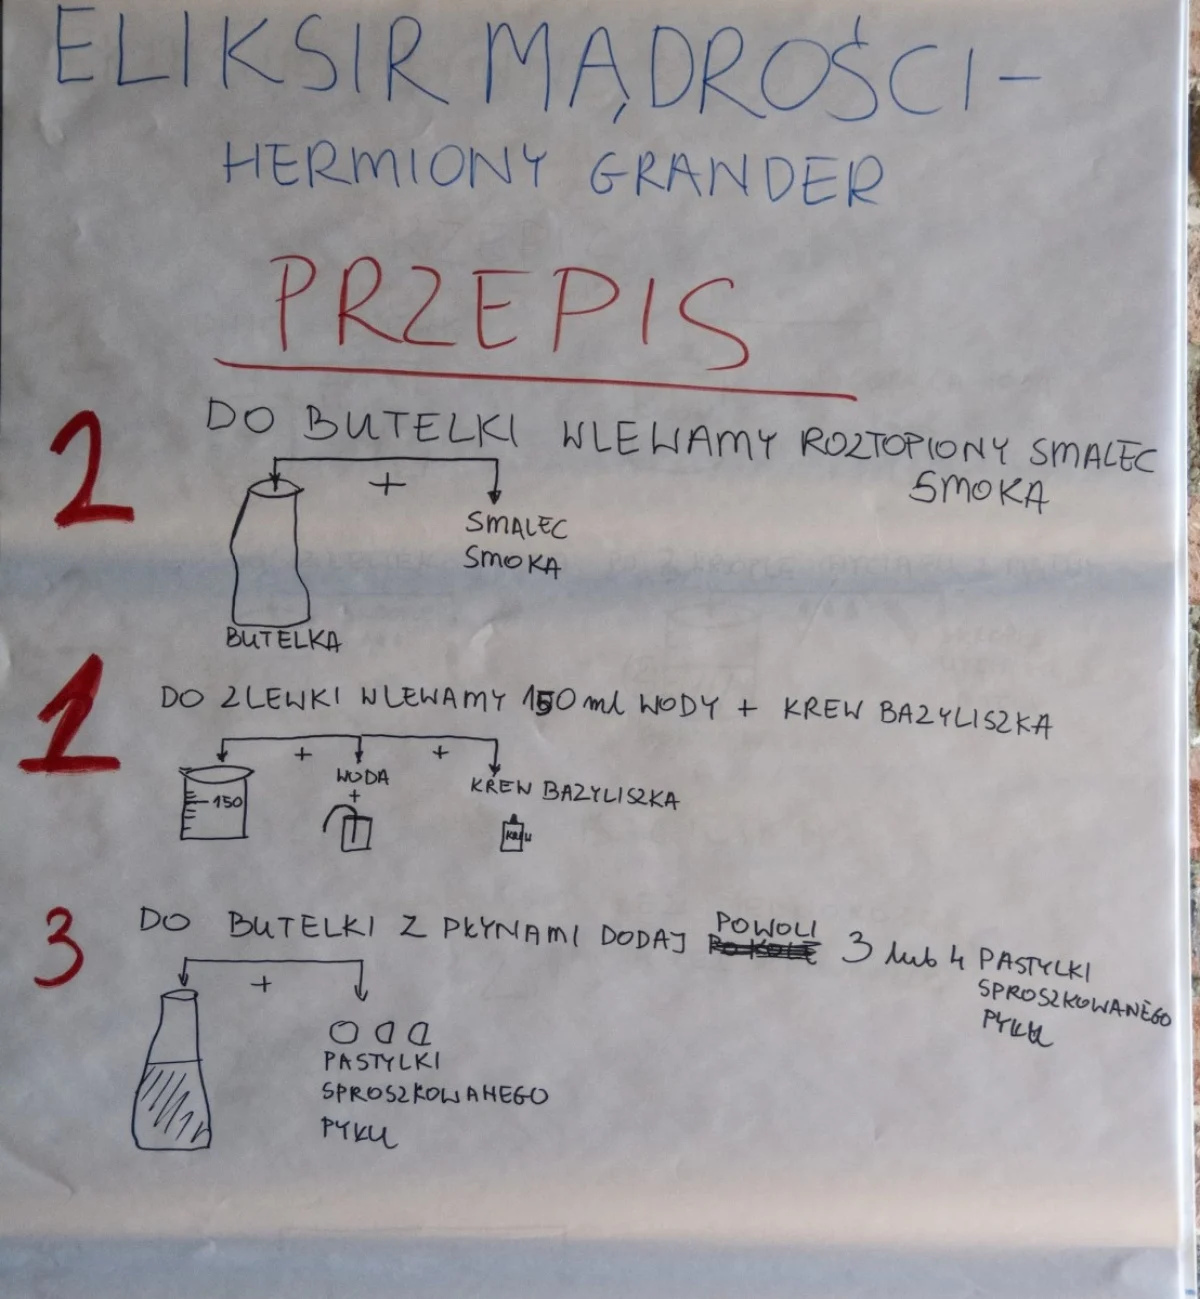 ELIKSIR MĄDROŚCI -
HERMIONY GRANDER
PRZEPIS
2 DO BUTELKI WLEWAMY ROZTOPIONY SMALEC
SMOKA
+
SMALEC
SMOKA
BUTELKA
1 DO ZLEWKI WLEWAMY 150 ml WODY + KREW BAZYLISZKA
+ +
150
WODA
+
KREW BAZYLISZKA
KREW
3 DO BUTELKI Z PŁYNAMI DODAJ POWOLI 3 lub 4 PASTYLKI
SPROSZKOWANEGO
PYKU
+
PASTYLKI
SPROSZKOWANEGO
PYKU